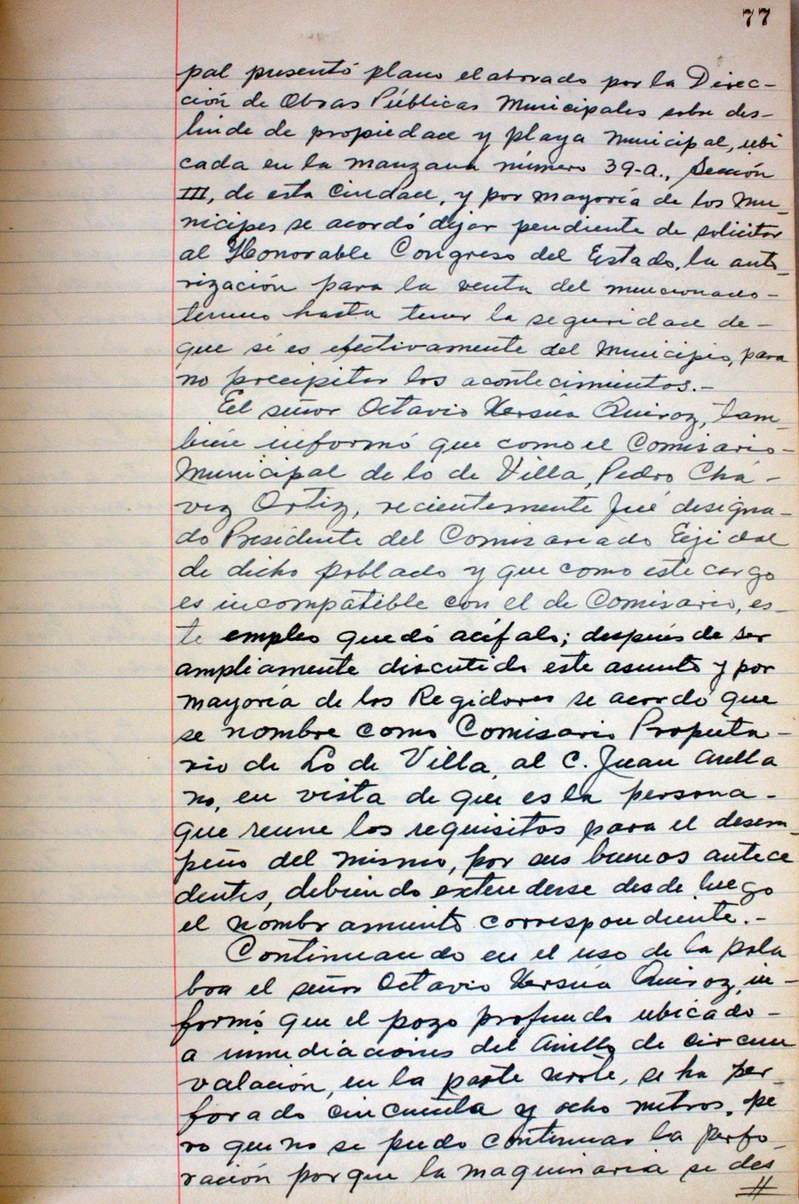 77
pal presentó plano elaborado por la Direc-
ción de Obras Públicas Municipales sobre des-
linde de propiedad y playa Municipal, ubi
cada en la manzana número 39-A., Sección
III, de esta Ciudad, y por mayoría de los Mu-
nícipes se acordó dejar pendiente de solicitar
al Honorable Congreso del Estado, la auto-
rización para la venta del mencionado-
terreno hasta tener la seguridad de-
que si es efectivamente del Municipio, para
no precipitar los acontecimientos.-
El señor Octavio Quiroz, tam-
bién informó que como el Comisario-
Municipal de lo de Villa, Pedro Chá-
vez Ortiz, recientemente fué designa-
do Presidente del Comisariado Ejidal
de dicho poblado y que como este cargo
es incompatible con el de Comisario, es-
te empleo quedó acéfalo; después de ser
ampliamente discutido este asunto y por
mayoría de los Regidores se acordó que
se nombre como Comisario Propieta-
rio de Lo de Villa, al C. Juan Arella
no, en vista de que es la persona-
que reune los requisitos para el desem-
peño del mismo, por sus buenos antece
dentes, debiendo extenderse desde luego
el nombramiento correspondiente.-
Continuando en el uso de la pala
bra el señor Octavio Quiroz, in-
formó que el pozo profundo ubicado-
a inmediaciones del Anillo de circun
valación, en la parte norte, se ha per-
forado cincuenta y ocho metros, pe
ro que no se pudo continuar la perfo-
ración porque la maquinaria se des
//